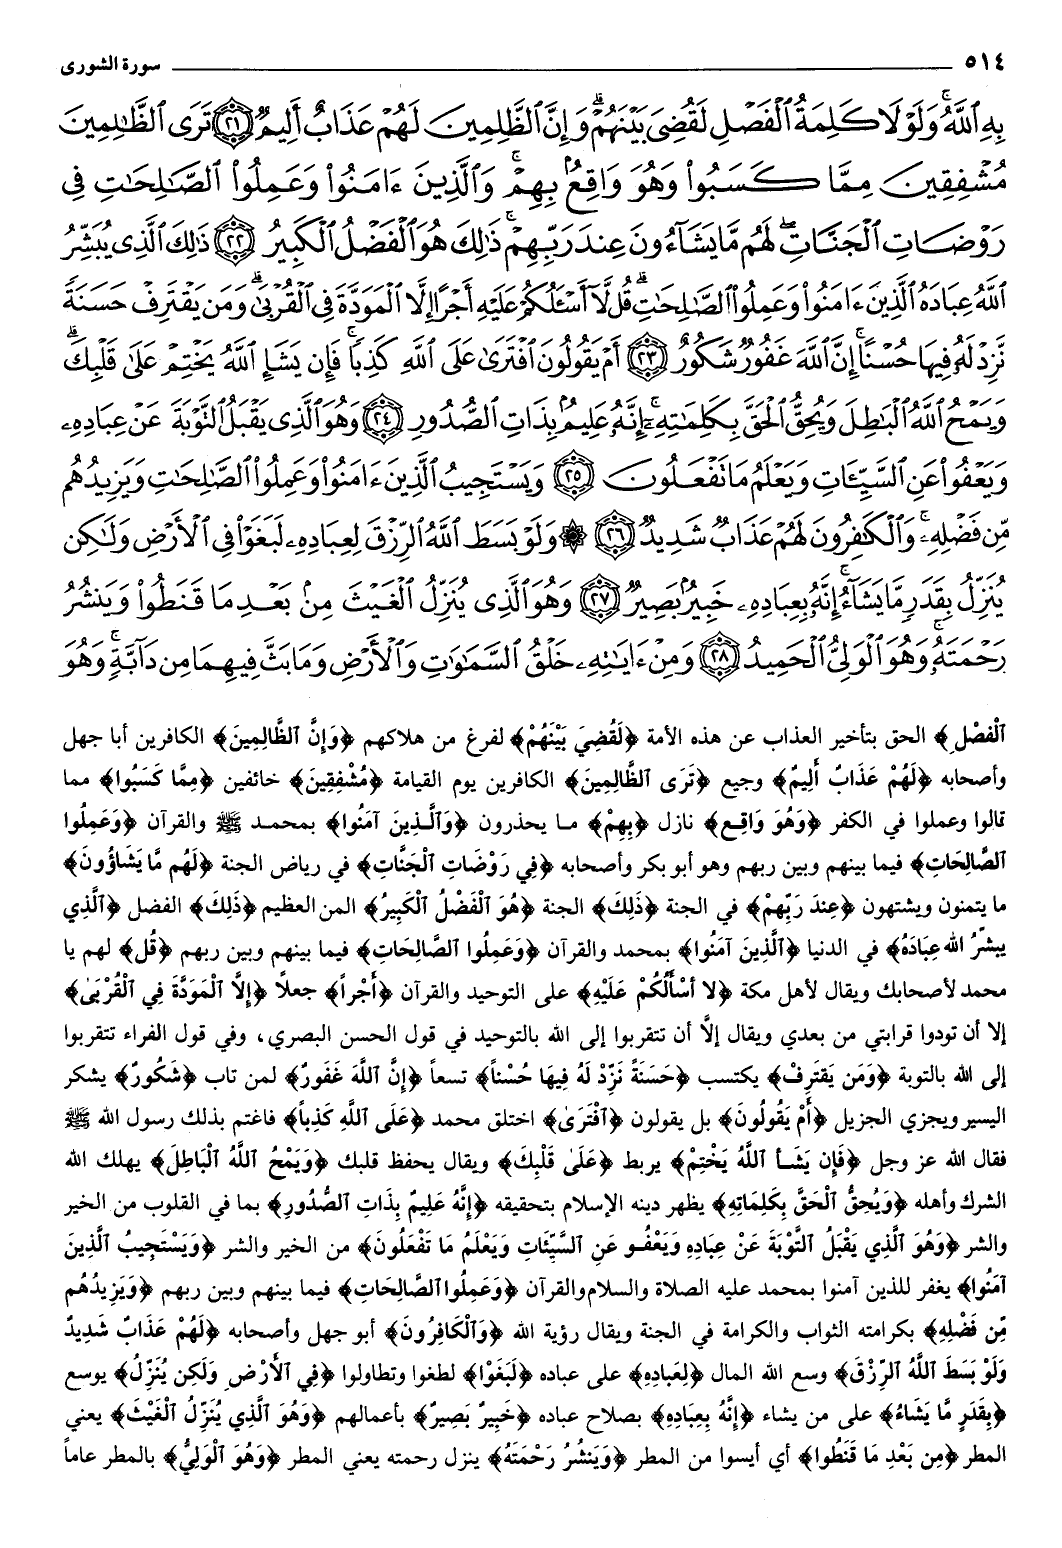 ٥١٤ سورة الشورى
بِهِ ٱللَّهُ ۚ وَلَوْلَا كَلِمَةُ ٱلْفَصْلِ لَقُضِىَ بَيْنَهُمْ ۗ وَإِنَّ ٱلظَّٰلِمِينَ لَهُمْ عَذَابٌ أَلِيمٌ ﴿٢١﴾ تَرَى ٱلظَّٰلِمِينَ
مُشْفِقِينَ مِمَّا كَسَبُوا۟ وَهُوَ وَاقِعٌۢ بِهِمْ ۗ وَٱلَّذِينَ ءَامَنُوا۟ وَعَمِلُوا۟ ٱلصَّٰلِحَٰتِ فِى
رَوْضَاتِ ٱلْجَنَّاتِ ۖ لَهُم مَّا يَشَآءُونَ عِندَ رَبِّهِمْ ۚ ذَٰلِكَ هُوَ ٱلْفَضْلُ ٱلْكَبِيرُ ﴿٢٢﴾ ذَٰلِكَ ٱلَّذِى يُبَشِّرُ
ٱللَّهُ عِبَادَهُ ٱلَّذِينَ ءَامَنُوا۟ وَعَمِلُوا۟ ٱلصَّٰلِحَٰتِ ۗ قُل لَّآ أَسْـَٔلُكُمْ عَلَيْهِ أَجْرًا إِلَّا ٱلْمَوَدَّةَ فِى ٱلْقُرْبَىٰ ۗ وَمَن يَقْتَرِفْ حَسَنَةً
نَّزِدْ لَهُۥ فِيهَا حُسْنًا ۚ إِنَّ ٱللَّهَ غَفُورٌ شَكُورٌ ﴿٢٣﴾ أَمْ يَقُولُونَ ٱفْتَرَىٰ عَلَى ٱللَّهِ كَذِبًا ۖ فَإِن يَشَإِ ٱللَّهُ يَخْتِمْ عَلَىٰ قَلْبِكَ ۗ
وَيَمْحُ ٱللَّهُ ٱلْبَٰطِلَ وَيُحِقُّ ٱلْحَقَّ بِكَلِمَٰتِهِۦٓ ۚ إِنَّهُۥ عَلِيمٌۢ بِذَاتِ ٱلصُّدُورِ ﴿٢٤﴾ وَهُوَ ٱلَّذِى يَقْبَلُ ٱلتَّوْبَةَ عَنْ عِبَادِهِۦ
وَيَعْفُوا۟ عَنِ ٱلسَّيِّـَٔاتِ وَيَعْلَمُ مَا تَفْعَلُونَ ﴿٢٥﴾ وَيَسْتَجِيبُ ٱلَّذِينَ ءَامَنُوا۟ وَعَمِلُوا۟ ٱلصَّٰلِحَٰتِ وَيَزِيدُهُم
مِّن فَضْلِهِۦ ۚ وَٱلْكَٰفِرُونَ لَهُمْ عَذَابٌ شَدِيدٌ ﴿٢٦﴾ ۞ وَلَوْ بَسَطَ ٱللَّهُ ٱلرِّزْقَ لِعِبَادِهِۦ لَبَغَوْا۟ فِى ٱلْأَرْضِ وَلَٰكِن
يُنَزِّلُ بِقَدَرٍ مَّا يَشَآءُ ۚ إِنَّهُۥ بِعِبَادِهِۦ خَبِيرٌۢ بَصِيرٌ ﴿٢٧﴾ وَهُوَ ٱلَّذِى يُنَزِّلُ ٱلْغَيْثَ مِنۢ بَعْدِ مَا قَنَطُوا۟ وَيَنشُرُ
رَحْمَتَهُۥ ۚ وَهُوَ ٱلْوَلِىُّ ٱلْحَمِيدُ ﴿٢٨﴾ وَمِنْ ءَايَٰتِهِۦ خَلْقُ ٱلسَّمَٰوَٰتِ وَٱلْأَرْضِ وَمَا بَثَّ فِيهِمَا مِن دَآبَّةٍ ۚ وَهُوَ
ٱلْفَصْلِ﴾ الحق بتأخير العذاب عن هذه الأمة ﴿لَقُضِيَ بَيْنَهُمْ﴾ لفرغ من هلاكهم ﴿وَإِنَّ ٱلظَّالِمِينَ﴾ الكافرين أبا جهل
وأصحابه ﴿لَهُمْ عَذَابٌ أَلِيمٌ﴾ وجيع ﴿تَرَى ٱلظَّالِمِينَ﴾ الكافرين يوم القيامة ﴿مُشْفِقِينَ﴾ خائفين ﴿مِمَّا كَسَبُوا﴾ مما
قالوا وعملوا في الكفر ﴿وَهُوَ وَاقِع﴾ نازل ﴿بِهِمْ﴾ ما يحذرون ﴿وَٱلَّذِينَ آمَنُوا﴾ بمحمد ﷺ والقرآن ﴿وَعَمِلُوا
ٱلصَّالِحَاتِ﴾ فيما بينهم وبين ربهم وهو أبو بكر وأصحابه ﴿فِي رَوْضَاتِ ٱلْجَنَّاتِ﴾ في رياض الجنة ﴿لَهُم مَّا يَشَاؤُونَ﴾
ما يتمنون ويشتهون ﴿عِندَ رَبِّهِمْ﴾ في الجنة ﴿ذَلِكَ﴾ الجنة ﴿هُوَ ٱلْفَضْلُ ٱلْكَبِيرُ﴾ المن العظيم ﴿ذَلِكَ﴾ الفضل ﴿ٱلَّذِي
يبشِّرُ الله عِبَادَهُ﴾ في الدنيا ﴿ٱلَّذِينَ آمَنُوا﴾ بمحمد والقرآن ﴿وَعَمِلُوا ٱلصَّالِحَاتِ﴾ فيما بينهم وبين ربهم ﴿قُل﴾ لهم يا
محمد لأصحابك ويقال لأهل مكة ﴿لا أسْأَلُكُمْ عَلَيْهِ﴾ على التوحيد والقرآن ﴿أَجْراً﴾ جعلاً ﴿إِلَّا ٱلْمَوَدَّةَ فِي ٱلْقُرْبَىٰ﴾
إلا أن تودوا قرابتي من بعدي ويقال إلَّا أن تتقربوا إلى الله بالتوحيد في قول الحسن البصري، وفي قول الفراء تتقربوا
إلى الله بالتوبة ﴿وَمَن يَقْتَرِفْ﴾ يكتسب ﴿حَسَنَةً نَزِدْ لَهُ فِيهَا حُسْناً﴾ تسعاً ﴿إِنَّ ٱللَّهَ غَفُورٌ﴾ لمن تاب ﴿شَكُورٌ﴾ يشكر
اليسير ويجزي الجزيل ﴿أَمْ يَقُولُونَ﴾ بل يقولون ﴿ٱفْتَرَىٰ﴾ اختلق محمد ﴿عَلَى ٱللَّهِ كَذِباً﴾ فاغتم بذلك رسول الله ﷺ
فقال الله عز وجل ﴿فَإِن يَشَـأ ٱللَّهُ يَخْتِمْ﴾ يربط ﴿عَلَىٰ قَلْبِكَ﴾ ويقال يحفظ قلبك ﴿وَيَمْحُ ٱللَّهُ ٱلْبَاطِلَ﴾ يهلك الله
الشرك وأهله ﴿وَيُحِقُّ ٱلْحَقَّ بِكَلِمَاتِهِ﴾ يظهر دينه الإسلام بتحقيقه ﴿إِنَّهُ عَلِيمٌ بِذَاتِ ٱلصُّدُورِ﴾ بما في القلوب من الخير
والشر ﴿وَهُوَ ٱلَّذِي يَقْبَلُ ٱلتَّوْبَةَ عَنْ عِبَادِهِ وَيَعْفُـو عَنِ ٱلسَّيِّئَاتِ وَيَعْلَمُ مَا تَفْعَلُونَ﴾ من الخير والشر ﴿وَيَسْتَجِيبُ ٱلَّذِينَ
آمَنُوا﴾ يغفر للذين آمنوا بمحمد عليه الصلاة والسلام والقرآن ﴿وَعَمِلُوا ٱلصَّالِحَاتِ﴾ فيما بينهم وبين ربهم ﴿وَيَزِيدُهُم
مِّن فَضْلِهِ﴾ بكرامته الثواب والكرامة في الجنة ويقال رؤية الله ﴿وَٱلْكَافِرُونَ﴾ أبو جهل وأصحابه ﴿لَهُمْ عَذَابٌ شَدِيدٌ
وَلَوْ بَسَطَ ٱللَّهُ ٱلرِّزْقَ﴾ وسع الله المال ﴿لِعِبَادِهِ﴾ على عباده ﴿لَبَغَوْا﴾ لطغوا وتطاولوا ﴿فِي ٱلأَرْضِ وَلَكِن يُنَزِّلُ﴾ يوسع
﴿بِقَدَرٍ مَّا يَشَاءُ﴾ على من يشاء ﴿إِنَّهُ بِعِبَادِهِ﴾ بصلاح عباده ﴿خَبِيرٌ بَصِيرٌ﴾ بأعمالهم ﴿وَهُوَ ٱلَّذِي يُنَزِّلُ ٱلْغَيْثَ﴾ يعني
المطر ﴿مِن بَعْدِ مَا قَنَطُوا﴾ أي أيسوا من المطر ﴿وَيَنشُرُ رَحْمَتَهُ﴾ ينزل رحمته يعني المطر ﴿وَهُوَ ٱلْوَلِيُّ﴾ بالمطر عاماً